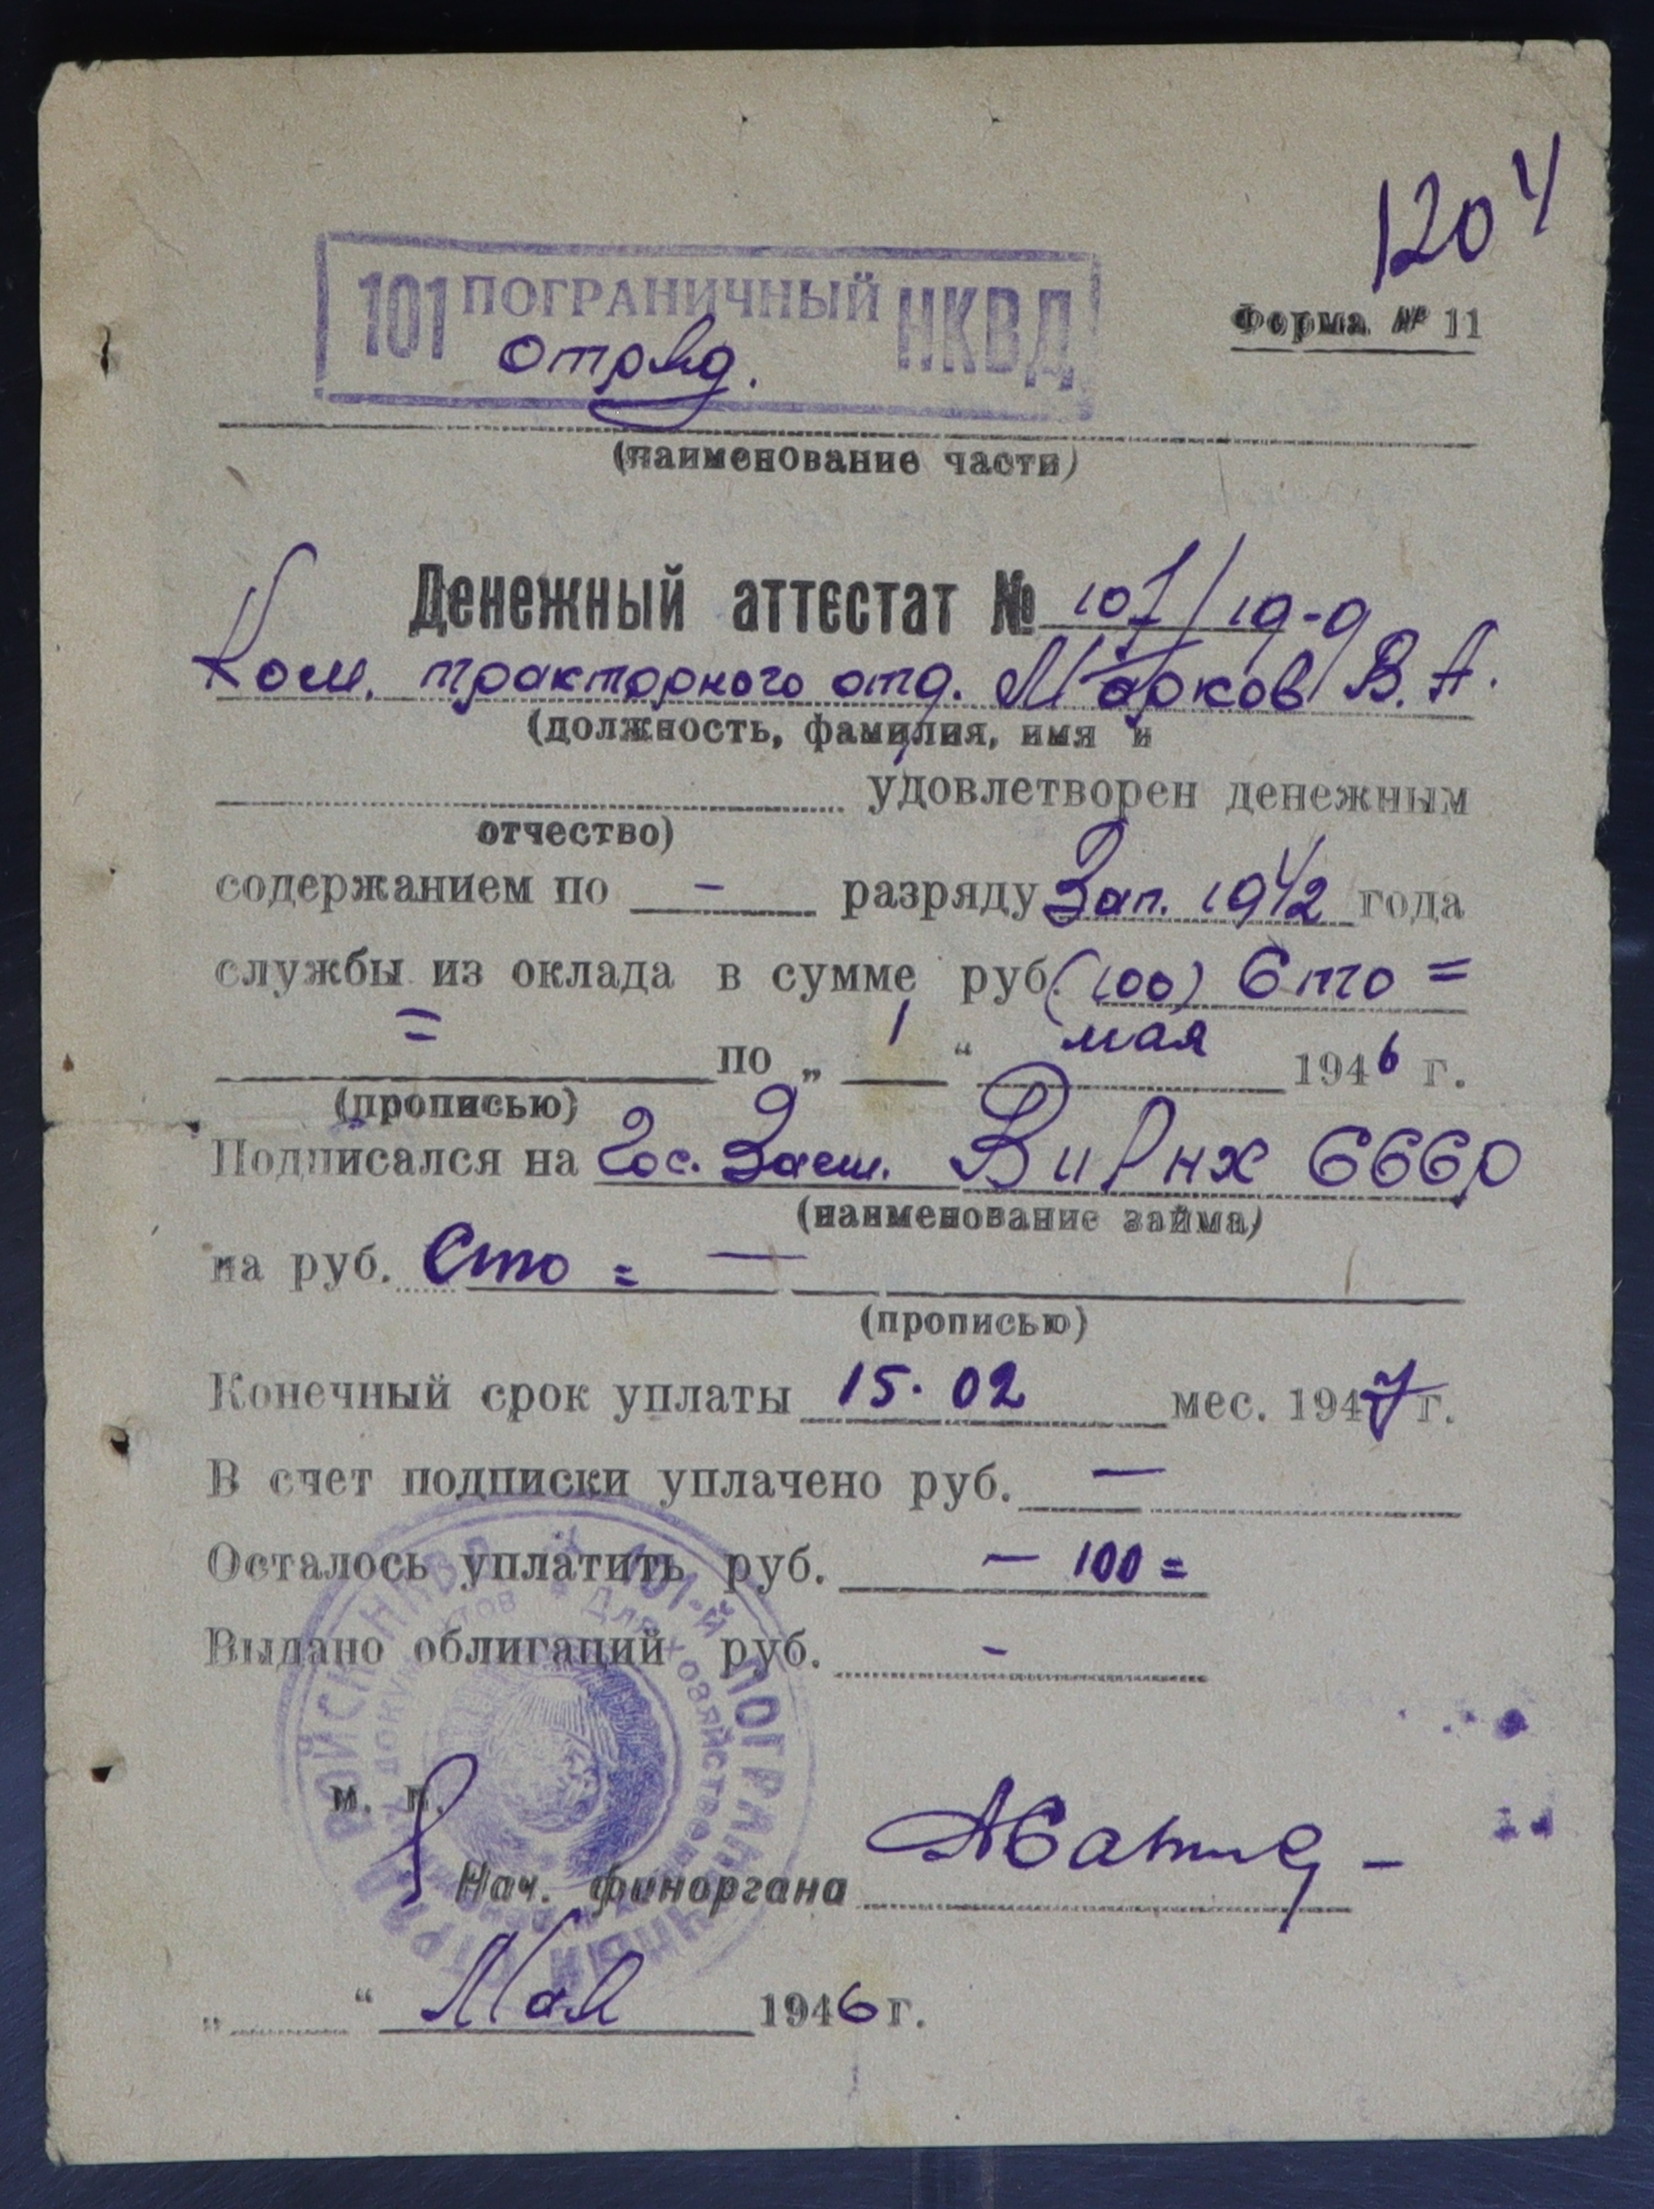 1204
101 ПОГРАНИЧНЫЙ НКВД
отряд.
Форма № 11
(наименование части)
Денежный аттестат № 107/19-9
Ком. тракторного отд. Марков В. А.
(должность, фамилия, имя и
удовлетворен денежным
отчество)
содержанием по - разряду Зап. 1942 года
службы из оклада в сумме руб. (100) Сто =
= по „ 1 “ мая 1946 г.
(прописью)
Подписался на Гос. Заем. В и Р нх СССР
(наименование займа)
на руб. Сто = —
(прописью)
Конечный срок уплаты 15.02 мес. 1947 г.
В счет подписки уплачено руб. —
Осталось уплатить руб. — 100 =
Выдано облигаций руб. -
101-й ПОГРАНИЧНЫЙ ОТРЯД ВОЙСК НКВД
Для хозяйственных документов
м. п.
Нач. финоргана
„ “ Мая 1946 г.